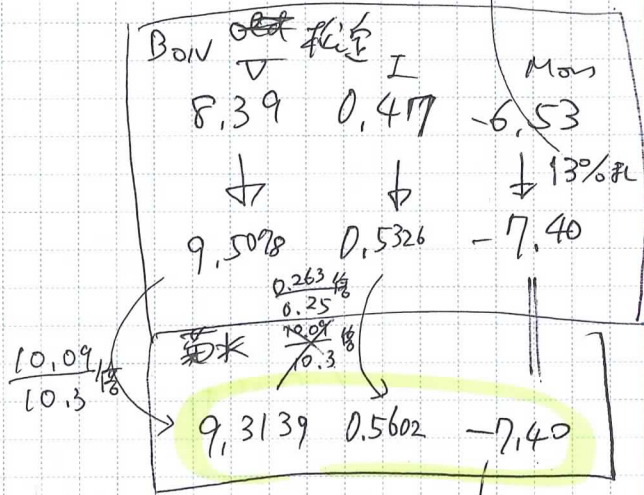 BDIV 松定
V I Mon
8.39 0.47 -6.53
↓ ↓ ↓ 13%乱
9.5098 0.5326 -7.40
0.263/0.25 倍
菊水
10.09/10.3 倍
9.3139 0.5602 -7.40